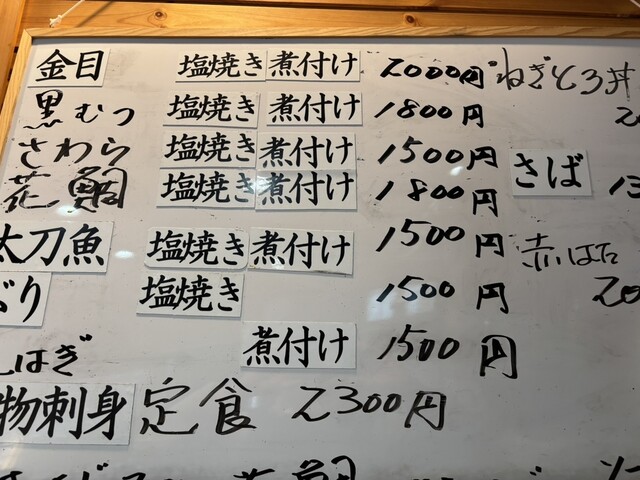 金目 塩焼き 煮付け 2000円 ねぎとろ丼
黒むつ 塩焼き 煮付け 1800円
さわら 塩焼き 煮付け 1500円 さば
花鯛 塩焼き 煮付け 1800円
太刀魚 塩焼き 煮付け 1500円 赤はた
ぶり 塩焼き 1500円
はぎ 煮付け 1500円
物刺身 定食 2300円